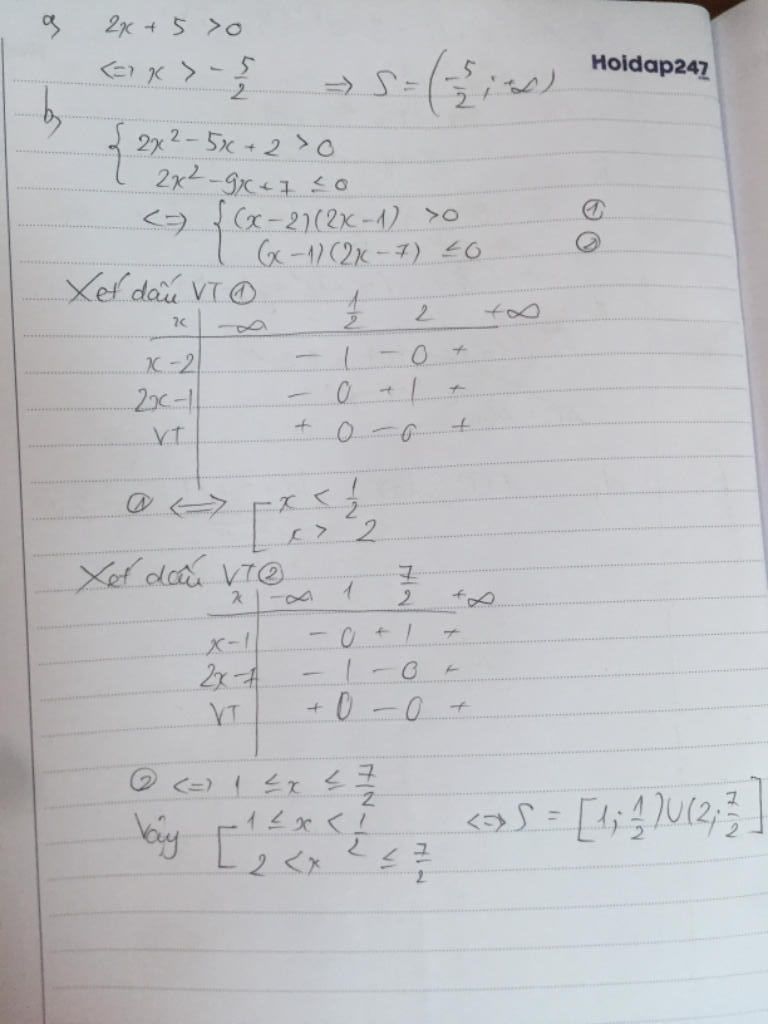 a) 2x + 5 > 0
Hoidap247
<=> x > - 5/2 => S = (-5/2 ; +∞)
b) { 2x² - 5x + 2 > 0
2x² - 9x + 7 ≤ 0
<=> { (x - 2)(2x - 1) > 0 ①
(x - 1)(2x - 7) ≤ 0 ②
Xét dấu VT ①
x | -∞ 1/2 2 +∞
x - 2 | - | - 0 +
2x - 1 | - 0 + | +
VT | + 0 - 0 +
① <=> [ x < 1/2
x > 2
Xét dấu VT ②
x | -∞ 1 7/2 +∞
x - 1 | - 0 + | +
2x - 7 | - | - 0 +
VT | + 0 - 0 +
② <=> 1 ≤ x ≤ 7/2
Vậy [ 1 ≤ x < 1/2 <=> S = [1; 1/2) ∪ (2; 7/2]
2 < x ≤ 7/2